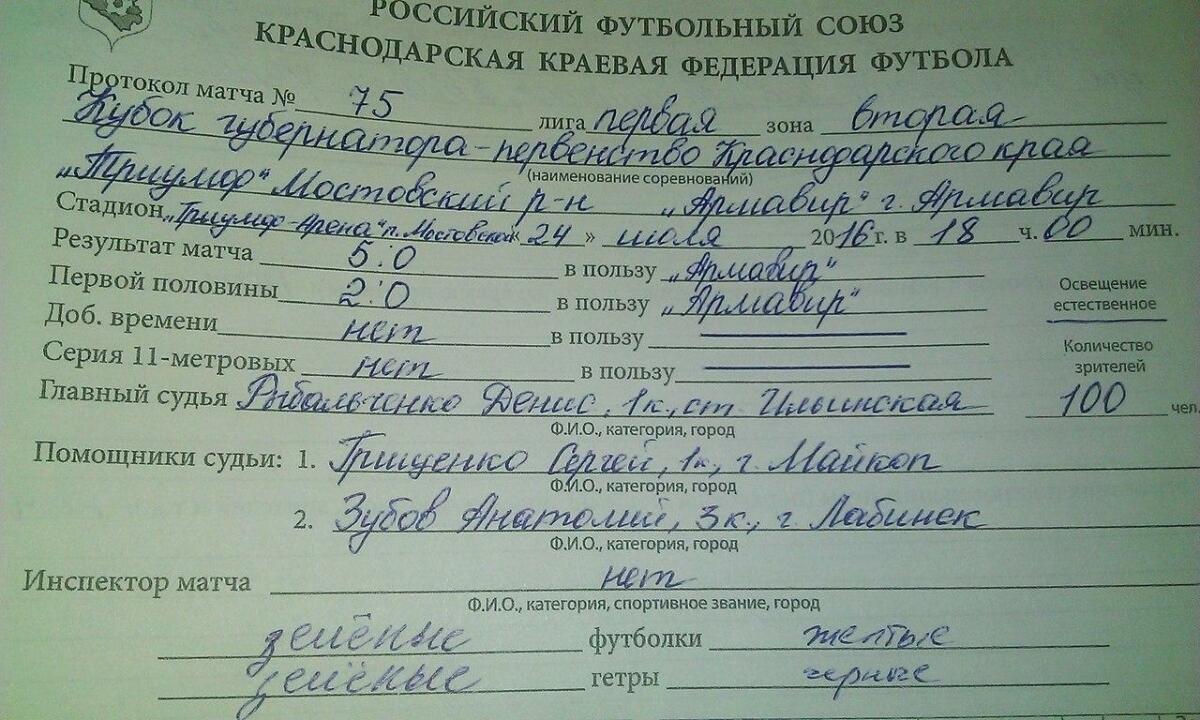 РОССИЙСКИЙ ФУТБОЛЬНЫЙ СОЮЗ
КРАСНОДАРСКАЯ КРАЕВАЯ ФЕДЕРАЦИЯ ФУТБОЛА
Протокол матча № 75 лига первая зона вторая
Кубок губернатора - первенство Краснодарского края
(наименование соревнований)
„Триумф“ Мостовский р-н „Армавир“ г. Армавир
Стадион „Триумф-Арена“ п. Мостовской « 24 » июля 2016 г. в 18 ч. 00 мин.
Результат матча 5:0 в пользу „Армавир“
Первой половины 2:0 в пользу „Армавир“
Освещение
естественное
Доб. времени нет в пользу
Серия 11-метровых нет в пользу
Количество
зрителей
Главный судья Рыбальченко Денис, 1к., ст. Ильинская 100 чел.
Ф.И.О., категория, город
Помощники судьи: 1. Грищенко Сергей, 1к., г. Майкоп
Ф.И.О., категория, город
2. Зубов Анатолий, 3к., г. Лабинск
Ф.И.О., категория, город
Инспектор матча нет
Ф.И.О., категория, спортивное звание, город
зелёные футболки желтые
зелёные гетры черные